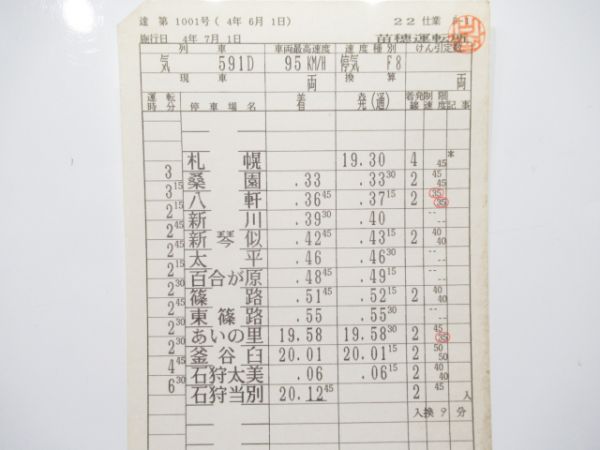 達 第 1001号 ( 4年 6月 1日) 22 仕業
施行日 4年 7月 1日 苗穂運転所
列 車 車両最高速度 速度種別 けん引定数
気 591D 95 KM/H 停気 F8
現 車 両 換 算 両
運転時分 停車場名 着 発(通) 着発線 制限速度 記事
札 幌 19.30 4 45 *
3
桑 園 .33 .33 30 2 45 45
3 15
八 軒 .36 45 .37 15 2 35 35
2 15
新 川 .39 30 .40 -- --
2 45
新 琴 似 .42 45 .43 15 2 40 40
2 45
太 平 .46 .46 30 -- --
2 15
百合が原 .48 45 .49 15 -- --
2 30
篠 路 .51 45 .52 15 2 40 40
2 45
東 篠 路 .55 .55 30 -- --
2 30
あいの里 19.58 19.58 30 2 45 35
2 30
釜谷臼 20.01 20.01 15 2 50 50
4 45
石狩太美 .06 .06 15 2 40 40
6 30
石狩当別 20.12 45 2 45 人
入換 9 分